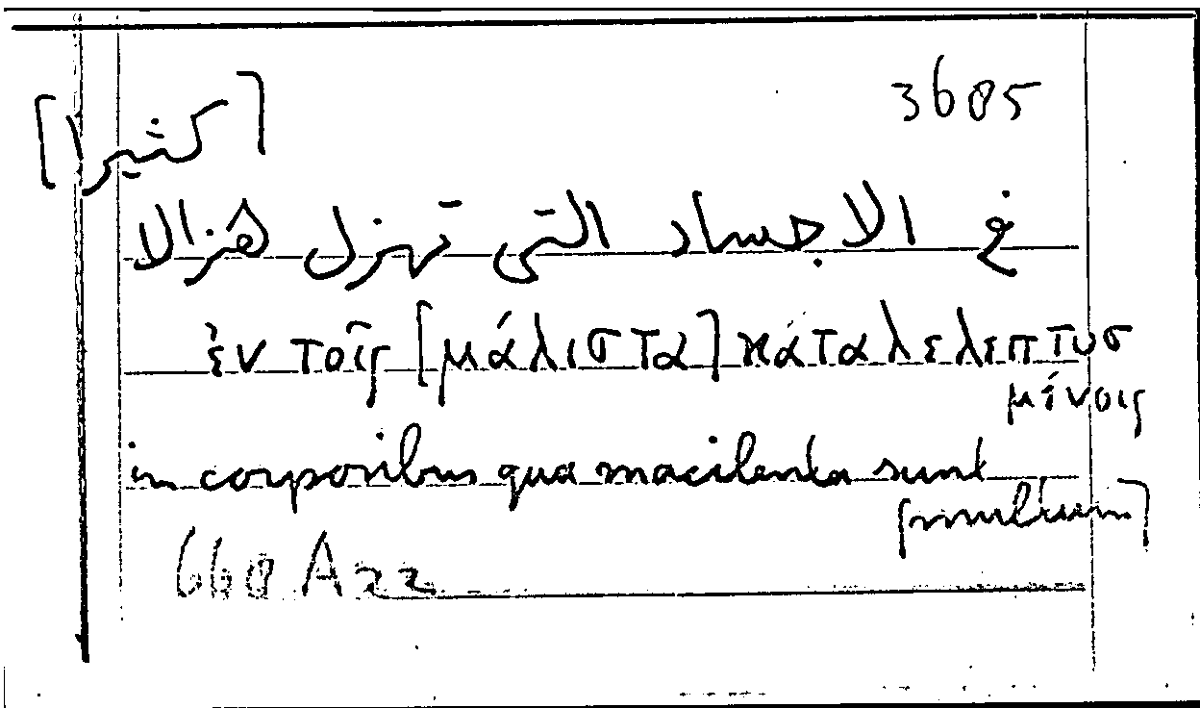 3685
[كثيرا]
في الاجساد التي تهزل هزالا
ἐν τοῖς [μάλιστα] κάταλελεπτυσ
μένοις
in corporibus quae macilenta sunt
[multum]
660 A 22